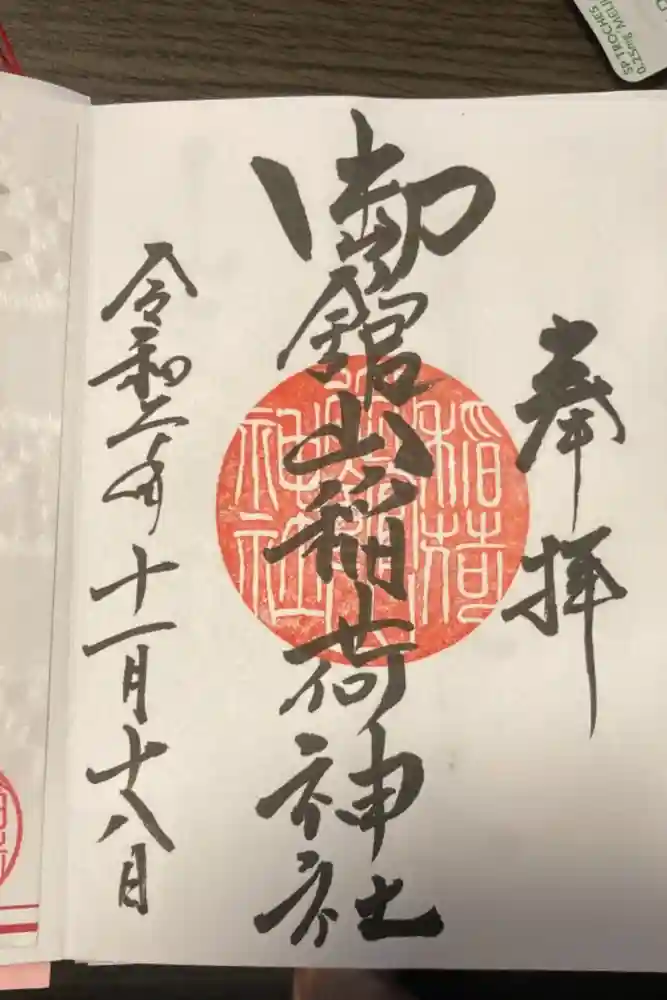 奉拝
御館山稲荷神社
令和二年十一月十八日
稲荷
神社
SP TROCHES
0.25mg MEIJI